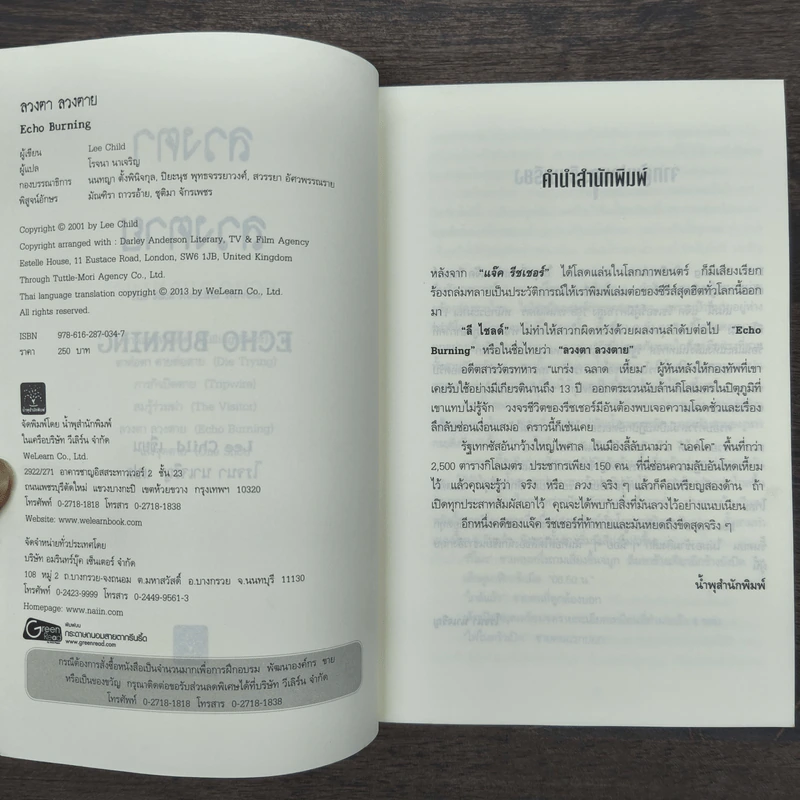 ลวงตา ลวงตาย
Echo Burning
ผู้เขียน Lee Child
ผู้แปล โรจนา นาเจริญ
กองบรรณาธิการ นนทญา ตั้งพินิจกุล, ปิยะนุช พุทธจรรยาวงศ์, สวรรยา อัศวพรรณราย
พิสูจน์อักษร มัณฑิรา ถาวรอ้าย, ชุติมา จักรเพชร
Copyright © 2001 by Lee Child
Copyright arranged with : Darley Anderson Literary, TV & Film Agency
Estelle House, 11 Eustace Road, London, SW6 1JB, United Kingdom
Through Tuttle-Mori Agency Co., Ltd.
Thai language translation copyright © 2013 by WeLearn Co., Ltd.
All rights reserved.
ISBN 978-616-287-034-7
ราคา 250 บาท
น้ำพุสำนักพิมพ์
จัดพิมพ์โดย น้ำพุสำนักพิมพ์
ในเครือบริษัท วีเลิร์น จำกัด
WeLearn Co., Ltd.
2922/271 อาคารชาญอิสสระทาวเวอร์ 2 ชั้น 23
ถนนเพชรบุรีตัดใหม่ แขวงบางกะปิ เขตห้วยขวาง กรุงเทพฯ 10320
โทรศัพท์ 0-2718-1818 โทรสาร 0-2718-1838
Website: www.welearnbook.com
จัดจำหน่ายทั่วประเทศโดย
บริษัท อมรินทร์บุ๊ค เซ็นเตอร์ จำกัด
108 หมู่ 2 ถ.บางกรวย-จงถนอม ต.มหาสวัสดิ์ อ.บางกรวย จ.นนทบุรี 11130
โทรศัพท์ 0-2423-9999 โทรสาร 0-2449-9561-3
Homepage: www.naiin.com
Green Read
พิมพ์บน
กระดาษถนอมสายตากรีนรี้ด
www.greenread.com
กรณีต้องการสั่งซื้อหนังสือเป็นจำนวนมากเพื่อการฝึกอบรม พัฒนาองค์กร ขาย
หรือเป็นของขวัญ กรุณาติดต่อขอรับส่วนลดพิเศษได้ที่บริษัท วีเลิร์น จำกัด
โทรศัพท์ 0-2718-1818 โทรสาร 0-2718-1838
คำนำสำนักพิมพ์
หลังจาก “แจ๊ค รีชเชอร์” ได้โลดแล่นในโลกภาพยนตร์ ก็มีเสียงเรียก
ร้องถล่มทลายเป็นประวัติการณ์ให้เราพิมพ์เล่มต่อของซีรีส์สุดฮิตทั่วโลกนี้ออก
มา
“ลี ไชลด์” ไม่ทำให้สาวกผิดหวังด้วยผลงานลำดับต่อไป “Echo
Burning” หรือในชื่อไทยว่า “ลวงตา ลวงตาย”
อดีตสารวัตรทหาร “แกร่ง ฉลาด เหี้ยม” ผู้หันหลังให้กองทัพที่เขา
เคยรับใช้อย่างมีเกียรตินานถึง 13 ปี ออกตระเวนนับล้านกิโลเมตรในปิตุภูมิที่
เขาแทบไม่รู้จัก วงจรชีวิตของรีชเชอร์มีอันต้องพบเจอความโฉดชั่วและเรื่อง
ลึกลับซ่อนเงื่อนเสมอ คราวนี้ก็เช่นเคย
รัฐเทกซัสอันกว้างใหญ่ไพศาล ในเมืองลี้ลับนามว่า “เอคโค” พื้นที่กว่า
2,500 ตารางกิโลเมตร ประชากรเพียง 150 คน ที่นี่ซ่อนความลับอันโหดเหี้ยม
ไว้ แล้วคุณจะรู้ว่า จริง หรือ ลวง จริง ๆ แล้วก็คือเหรียญสองด้าน ถ้า
เปิดทุกประสาทสัมผัสเอาไว้ คุณจะได้พบกับสิ่งที่มันลวงไว้อย่างแนบเนียน
อีกหนึ่งคดีของแจ๊ค รีชเชอร์ที่ท้าทายและมันหยดถึงขีดสุดจริง ๆ
น้ำพุสำนักพิมพ์